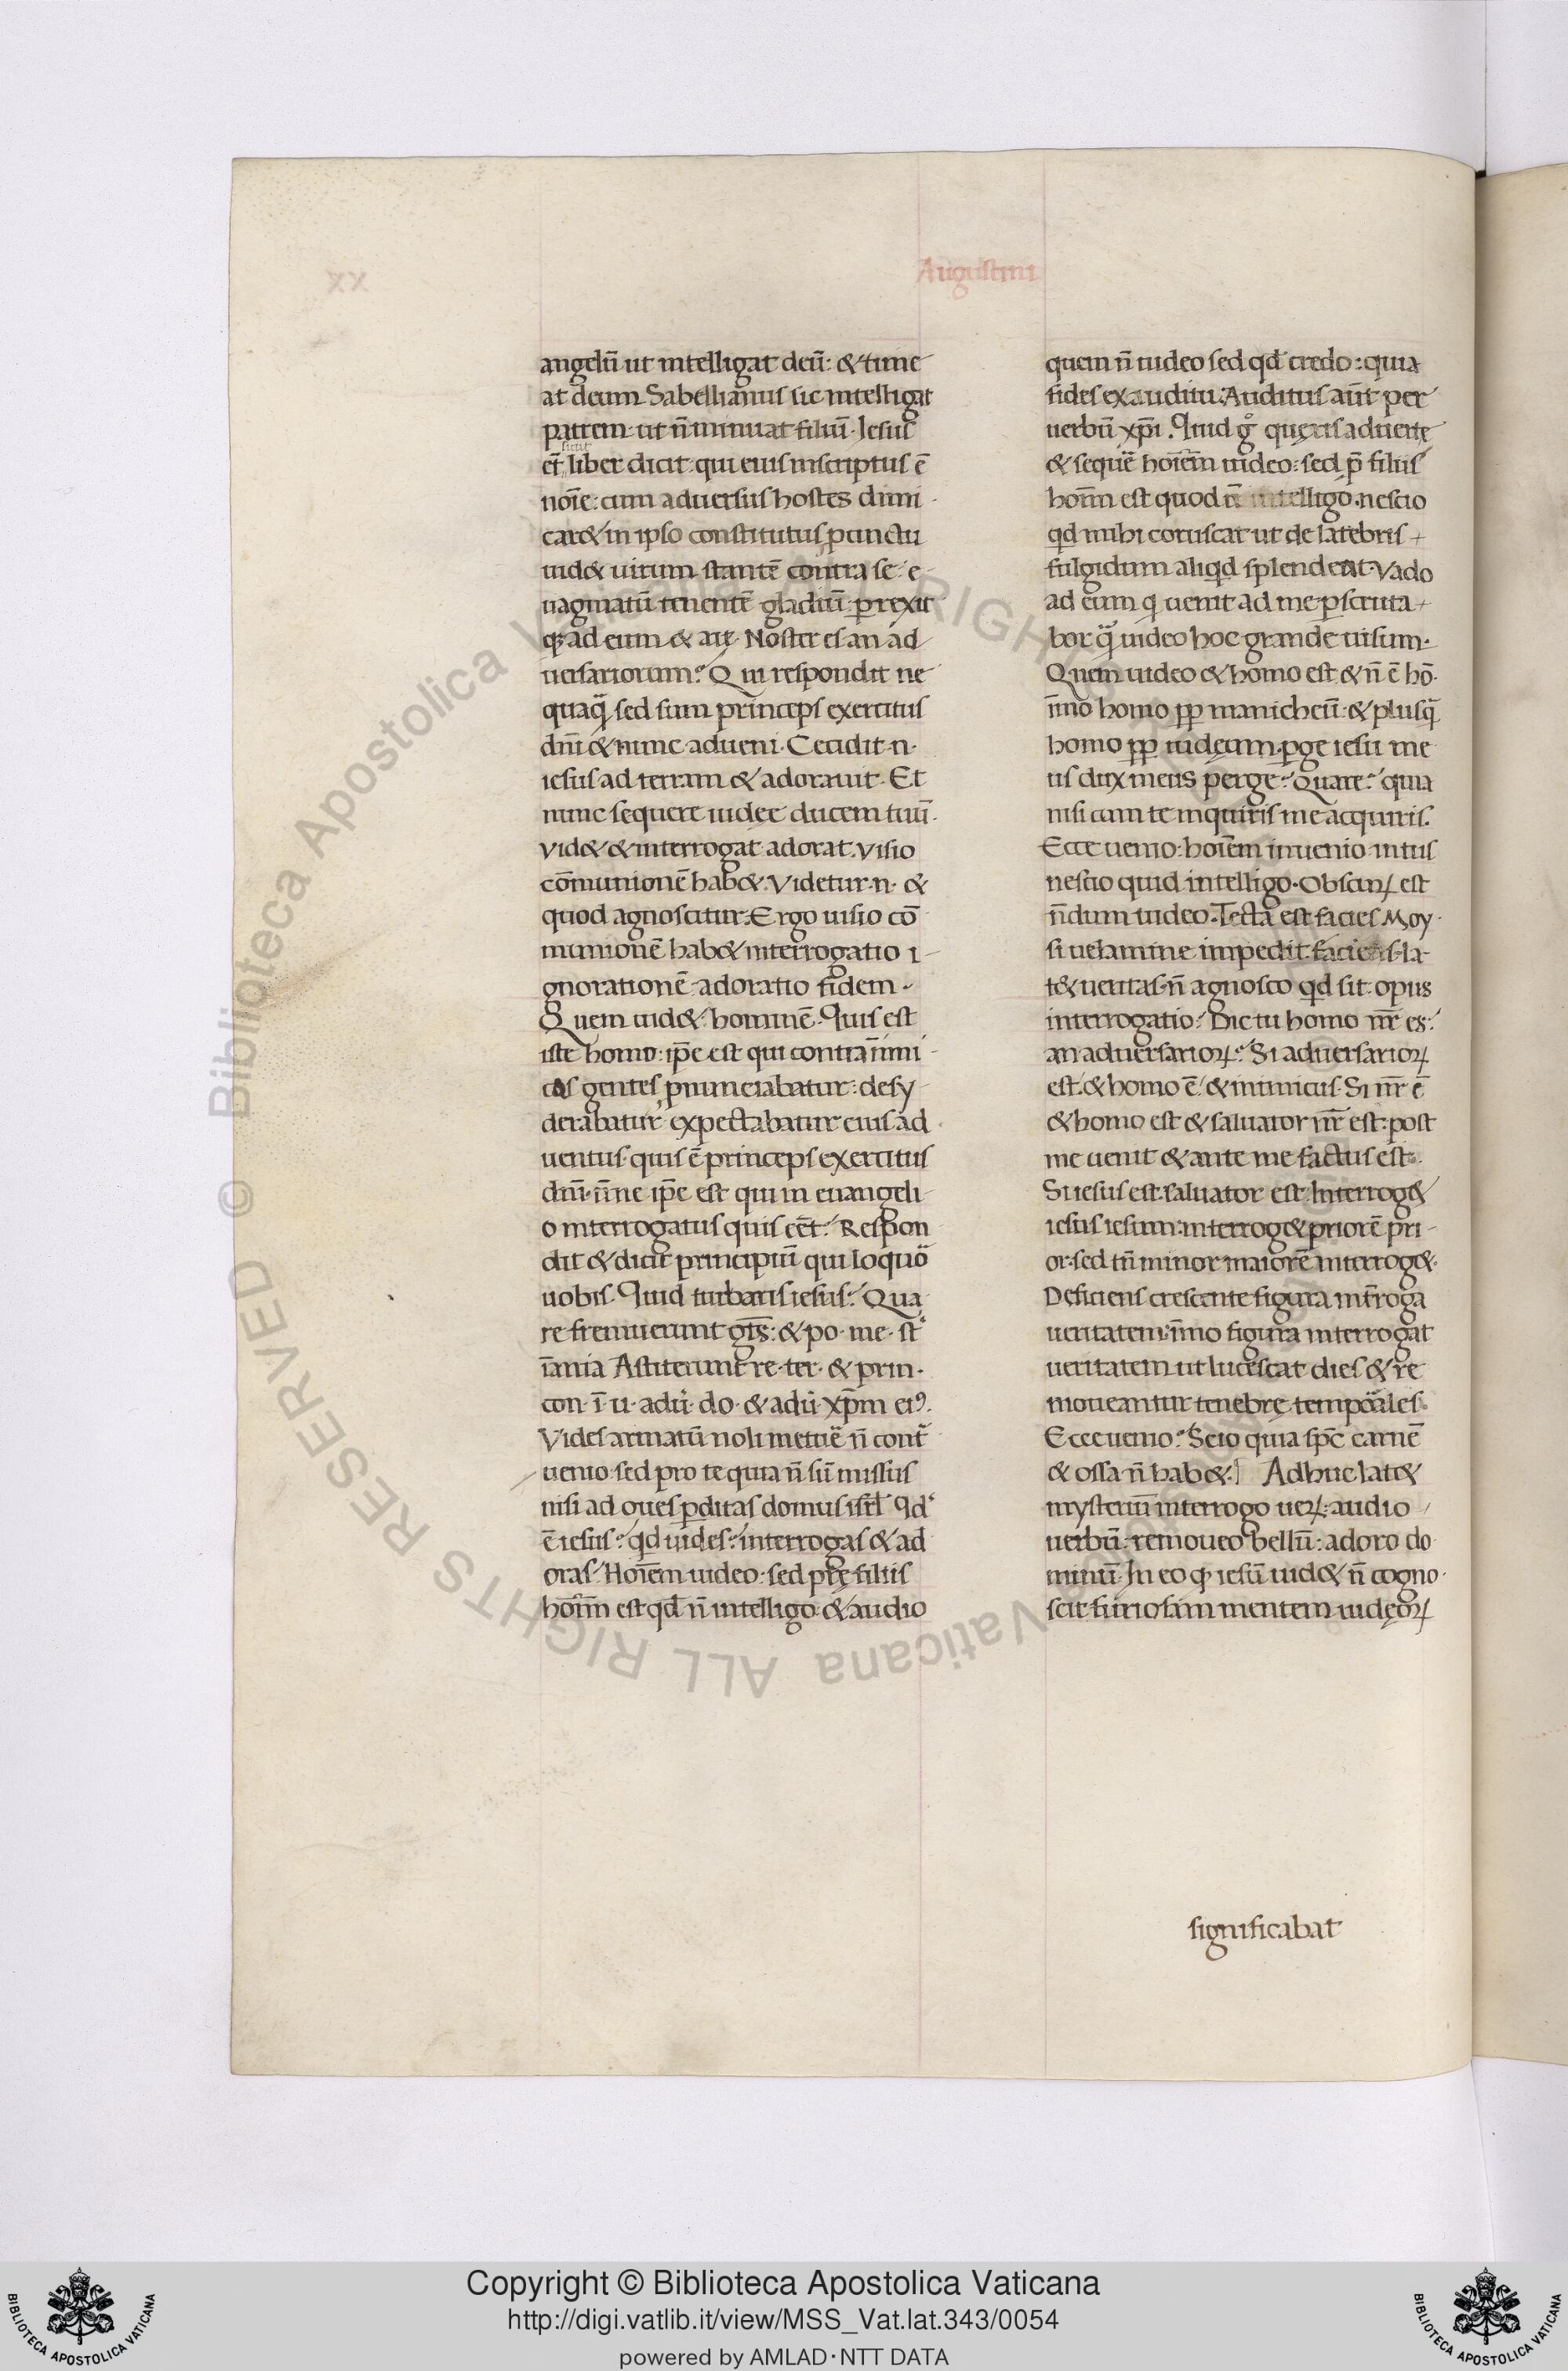 xx
Augustini
angelū ut intelligat deū: & time
at deum Sabellianus sic intelligat
patrem ut n̄ minuat filiū. Iesus
et̄ sicut liber dicit: qui eius inscriptus ē
noīe: cum aduersus hostes dimi
car& in ipso constitutus, p cunctu
uid& uirum stantē contra se: e
uaginatū tenentē gladiū: perrexit
q; ad eum & ait. Noster es an ad
uersariorum? Qui respondit ne
quaq̄ sed sum princeps exercitus
dn̄i & nunc adueni. Cecidit .n.
iesus ad terram & adorauit. Et
nunc sequere iudęe ducem tuū.
Vid& & interrogat adorat. Visio
cōmunionē hab&. Videtur .n. &
quod agnoscitur. Ergo uisio cō
munionē hab& interrogatio i
gnorationē adoratio fidem.
Quem uid&. hominē. Quis est
iste homo: ip̄e est qui contra inimi
cas gentes pnunciabatur: desy
derabatur expectabatur eius ad
uentus. quis ē princeps exercitus
dn̄i. n̄ne ip̄e est qui in euangeli
o interrogatus quis eēt? Respon
dit & dicit principiū qui loquor
uobis. Quid turbaris iesus? Qua
re fremuerunt gn̄s: & po. me. st̄
īania Astiterunt re. ter. & prin.
con. ī. u. adu. do. & adu. xp̄m ei9.
Vides armatū noli metuē n̄ cont̄
uenio. sed pro te quia n̄ sū missus
nisi ad oues pditas domus isr̄l Qd
ē iesus? qd uides? interrogas & ad
oras? Hoīem uideo: sed prę filiis
hoīm est qd n̄ intelligo & audio
quem n̄ uideo sed qd credo: quia
fides ex auditu. Auditus aūt per
uerbū xp̄i. Quid g° quęris aduerte
& sequē hoīem uideo: sed p̄ filiis
hoīm est quod n̄ intelligo. nescio
qd mihi coruscat ut de latebris
fulgidum aliqd splendeat. Vado
ad eum q uenit ad me pscruta
bor q̄ uideo hoc grande uisum.
Quem uideo & homo est & n̄ ē hō.
īmo homo pp manicheū: & plusq̄
homo pp iudęum. pge iesu me
us dux meus perge? Quare? quia
nisi cum te inquiris me acquiris.
Ecce uenio: hoīem inuenio intus
nescio quid intelligo. Obscurꝝ est
n̄dum uideo. Tecta est facies Moy
si uelamine impedit. facies. la
t& ueritas. n̄ agnosco qd sit. opus
interrogatio? Dic tu homo nr̄ es?
an aduersarioꝝ? Si aduersarioꝝ
est. & homo ē & inimicus. Si nr̄ ē
& homo est & saluator nr̄ est: post
me uenit & ante me factus est.
Si iesus est. saluator est. Interrog&
iesus iesum: interrog& priorē pri
or. sed tn̄ minor maiorē interrog&.
Deficiens crescente figura int̄roga
ueritatem: īmo figura interrogat
ueritatem ut lucescat dies & re
moueantur tenebrę temporales.
Ecce uenio? Scio quia sp̄c carnē
& ossa n̄ hab&. Adhuc lat&
mysteriū interrogo ueꝝ: audio
uerbū: remoueo bellū: adoro do
minū. In eo q iesū uid& n̄ cogno
scit furiosam mentem iudęoꝝ
significabat
Copyright © Biblioteca Apostolica Vaticana
http://digi.vatlib.it/view/MSS_Vat.lat.343/0054
powered by AMLAD·NTT DATA
BIBLIOTECA APOSTOLICA VATICANA
BIBLIOTECA APOSTOLICA VATICANA
© Biblioteca Apostolica Vaticana ALL RIGHTS RESERVED